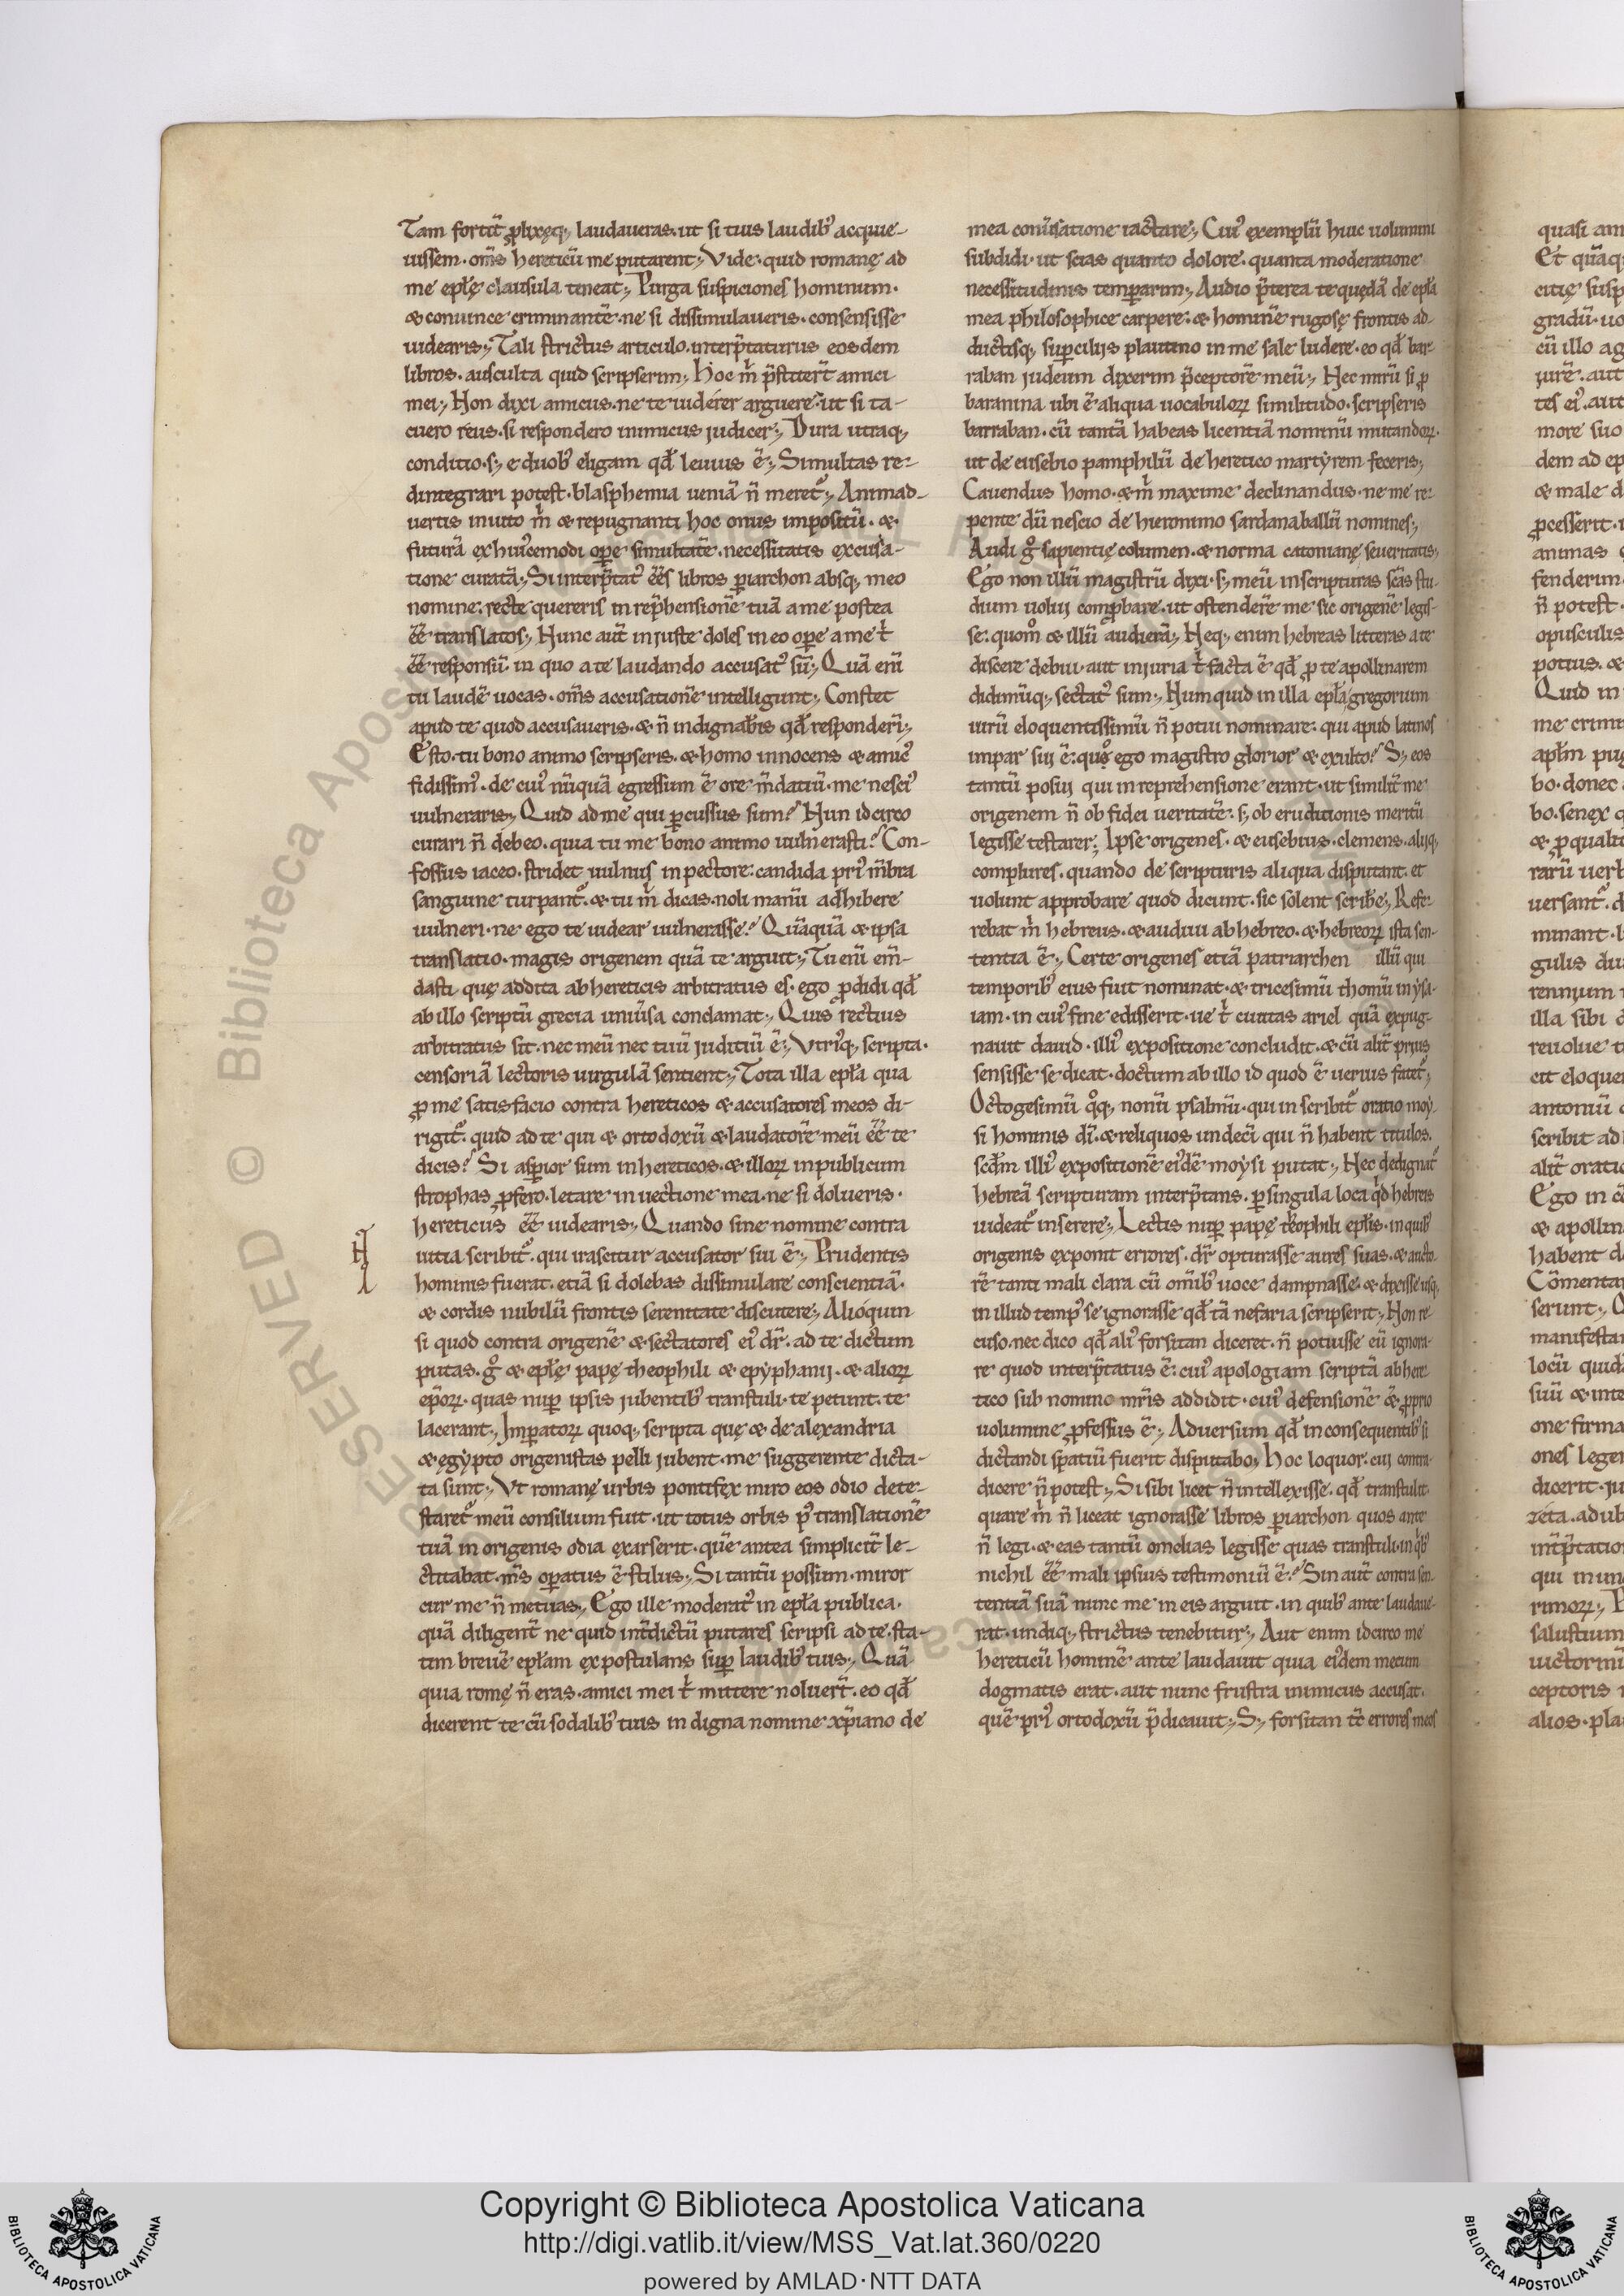 Tam fortit̄ ꝓlixęq; laudaueras. ut si tuis laudib᾽ acquie-
uissem. om̄s hereticū me putarent; Vide. quid romanę ad
me epłę clausula teneat; Purga suspiciones hominum.
& conuince criminantē. ne si dissimulaueris. consensisse
uidearis; Tali strictus articulo. interp̄taturus eosdem
libros. ausculta quid scripserim; Hoc m̊ p̄stiter̄ amici
mei; Non dixi amicus. ne te uiderer arguere. ut si ta-
cuero reus. si respondero inimicus judicer; Dura utraq;
conditio. s; e duob᾽ eligam qđ leuius ē; Simultas re-
dintegrari potest. blasphemia ueniā n̄ meret᾽; Animad-
uertis inuito m̊ & repugnanti hoc onus impositū. &
futurā ex hui᾽cemodi oꝑe simultatē. necessitatis excusa-
tione curatā; Si interp̄tat᾽ ēēs libros ꝑiarchon absq; meo
nomine. recte quereris in rep̄hensionē tuā a me postea
ēē translatos; Nunc aut̄ injuste doles in eo oꝑe a me t̊
ēē responsū. in quo a te laudando accusat᾽ sū; Quā enī
tu laudē uocas. om̄s accusationē intelligunt; Constet
apud te quod accusaueris. & n̄ indignab̄is qđ responderī;
Esto. tu bono animo scripseris. & homo innocens & amic᾽
fidissim᾽. de cui᾽ nūquā egressum ē ore m̄datiū. me nesci᾽
uulneraris; Quid ad me qui ꝑcussus sum? Nun idcirco
curari n̄ debeo. quia tu me bono animo uulnerasti? Con-
fossus iaceo. stridet uulnus in pectore. candida pri᾽ m̄bra
sanguine turpant᾽. & tu m̊ dicas. noli manū adhibere
uulneri. ne ego te uidear uulnerasse? Quāquā & ipsa
translatio. magis origenem quā te arguit; Tu enī em̄-
dasti quę addita ab hereticis arbitratus es. ego ꝓdidi qđ
ab illo scriptū grecia uniu᾽sa condamat; Quis rectius
arbitratus sit. nec meū nec tuū juditiū ē; Vtri᾽q; scripta.
censoriā lectoris uirgulā sentient; Tota illa epła qua
ꝓ me satisfacio contra hereticos & accusatores meos di-
rigit᾽. quid ad te qui & ortodoxū & laudatorē meū ēē te
dicis? Si asꝑior sum in hereticos. & illoꝝ in publicum
strophas ꝓfero. letare inuectione mea. ne si dolueris.
hereticus ēē uidearis; Quando sine nomine contra
uitia scribit᾽. qui irascitur accusator sui ē; Prudentis
hominis fuerat. etiā si dolebas dissimulare conscientiā.
& cordis nubilū frontis serenitate discutere; Alióquin
si quod contra origenē & sectatores ei᾽ dr̄. ad te dictum
putas. g̊ & epłę papę theophili & epyphanij. & alioꝝ
ep̄oꝝ. quas nuꝑ ipsis jubentib᾽ transtuli. te petunt. te
lacerant; Imꝑatoꝝ quoq; scripta quę & de alexandria
& ęgypto origenistas pelli jubent. me suggerente dicta-
ta sunt; Vt romanę urbis pontifex miro eos odio dete-
staret᾽ meū consilium fuit. ut totus orbis p᾽ translationē
tuā in origenis odia exarserit. quē antea simplicit̄ le-
ctitabat. m̄s oꝑatus ē stilus; Si tantū possum. miror
cur me n̄ metuas; Ego ille moderat᾽ in epła publica.
quā diligent̄ ne quid int̄dictū putares scripsi ad te. sta-
tim breuē epłam expostulans suꝑ laudib᾽ tuis; Quā
quia romę n̄ eras. amici mei t̊ mittere noluer̄. eo qđ
dicerent te cū sodalib᾽ tuis indigna nomine xp̄iano de
mea conu᾽satione iactare; Cui᾽ exemplū huic uolumini
subdidi. ut scias quanto dolore. quanta moderatione
necessitudinis temꝑarim; Audio p̄terea te quędā de epła
mea philosophice carpere. & hominē rugosę frontis ad-
ductisq; suꝑciliis plautino in me sale ludere. eo qđ bar-
raban judeum dixerim p̄ceptorē meū; Nec mirū si ꝓ
baranina ubi ē aliqua uocabuloꝝ similitudo. scripseris
barraban. cū tantā habeas licentiā nominū mutandoꝝ.
ut de eusebio pamphilū de heretico martyrem feceris;
Cauendus homo. & m̊ maxime declinandus. ne me re-
pente dū nescio de hieronimo sardanaballū nomines;
Audi g̊ sapientię columen. & norma catonianę seueritatis;
Ego non illū magistrū dixi. s; meū in scripturas sc̄as stu-
dium uolui comꝓbare. ut ostenderē me sic origenē legis-
se. quom̊ & illū audierā; Neq; enim hebreas litteras a te
discere debui. aut injuria t̊ facta ē qđ ꝓ te apollinarem
didimūq; sectat᾽ sum; Numquid in illa epła gregorium
uirū eloquentissimū n̄ potui nominare. qui apud latinos
impar sui ē. quo᾽ ego magistro glorior & exulto? S; eos
tantū posui qui in reprehensione erant. ut similit̄ me
origenem n̄ ob fidei ueritatē. s; ob eruditionis meritū
legisse testarer; Ipse origenes. & eusebius. clemens. aliiq;
complures. quando de scripturis aliqua disputant. et
uolunt approbare quod dicunt. sic solent scrib̄e; Refe-
rebat m̊ hebreus. & audiui ab hebreo. & hebreoꝝ ista sen-
tentia ē; Certe origenes etiā patriarchen illū qui
temporib᾽ eius fuit nominat. & tricesimū thomū in ysa-
iam. in cui᾽ fine edisserit. ue t̊ ciuitas ariel quā expug-
nauit dauid. illi᾽ expositione concludit. & cū alit̄ prius
sensisse se dicat. doctum ab illo id quod ē uerius fatet᾽;
Octogesimū q̊q; nonū psalmū. qui inscribit᾽ oratio moy-
si hominis dī. & reliquos undecī qui n̄ habent titulos.
scđm illi᾽ expositionē ei᾽dē moysi putat; Nec dedignat᾽
hebreā scripturam interp̄tans. ꝑ singula loca qđ hebreis
uideat᾽ inserere; Lectis nuꝑ papę theophili epłis. in quib᾽
origenis exponit errores. dr̄ opturasse aures suas. & aucto-
rē tanti mali clara cū omīb᾽ uoce dampnasse. & dixisse usq;
in illud temp᾽ se ignorasse qđ tā nefaria scripserit; Non re-
cuso. nec dico qđ ali᾽ forsitan diceret. n̄ potuisse eū ignora-
re quod interp̄tatus ē. cui᾽ apologiam scriptā ab here-
tico sub nomine mr̄is addidit. cui᾽ defensionē & ꝓprio
uolumine ꝓfessus ē; Aduersum qđ in consequentib᾽ si
dictandi spatiū fuerit disputabo; Hoc loquor. cui contra-
dicere n̄ potest; Si sibi licet n̄ intellexisse. qđ transtulit.
quare m̊ n̄ liceat ignorasse libros ꝑiarchon quos ante
n̄ legi. & eas tantū omelias legisse quas transtuli. in qb᾽
nichil ēē mali ipsius testimoniū ē? Sin aut̄ contra sen-
tentiā suā nunc me in eis arguit. in quib᾽ ante laudaue-
rat. undiq; strictus tenebitur; Aut enim idcirco me
hereticū hominē ante laudauit quia ei᾽dem mecum
dogmatis erat. aut nunc frustra inimicus accusat.
quē pri᾽ ortodoxū p̄dicauit; S; forsitan tc̄ errores meos
Copyright © Biblioteca Apostolica Vaticana
http://digi.vatlib.it/view/MSS_Vat.lat.360/0220
powered by AMLAD·NTT DATA
BIBLIOTECA APOSTOLICA VATICANA
BIBLIOTECA APOSTOLICA VATICANA